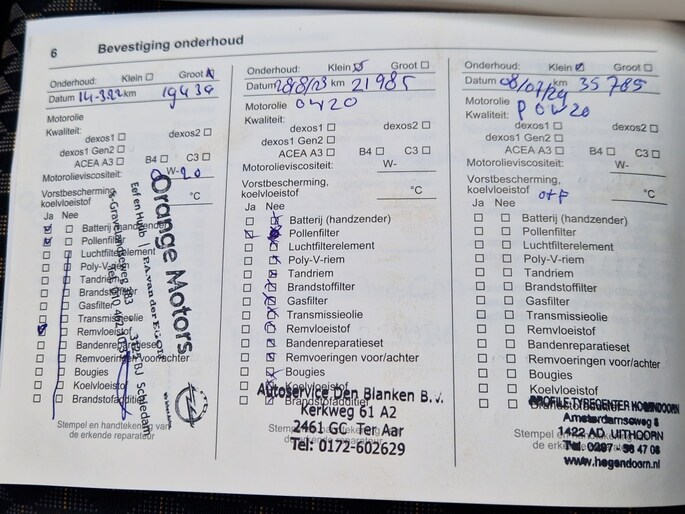 6 Bevestiging onderhoud
Onderhoud: Klein ☐ Groot ☒
Datum 14-3-22 km 19439
Motorolie
Kwaliteit:
dexos1 ☐ dexos2 ☐
dexos1 Gen2 ☐
ACEA A3 ☐ B4 ☐ C3 ☐
Motorolieviscositeit: 0 W-20
Vorstbescherming,
koelvloeistof °C
Ja Nee
Batterij (handzender)
Pollenfilter
Luchtfilterelement
Poly-V-riem
Tandriem
Brandstoffilter
Gasfilter
Transmissieolie
Remvloeistof
Bandenreparatieset
Remvoeringen voor/achter
Bougies
Koelvloeistof
Brandstofadditief
Stempel en handtekening van
de erkende reparateur
Orange Motors
Opel
Onderhoud: Klein ☒ Groot ☐
Datum 28/8/23 km 21985
Motorolie 0W20
Kwaliteit:
dexos1 ☐ dexos2 ☐
dexos1 Gen2 ☐
ACEA A3 ☐ B4 ☐ C3 ☐
Motorolieviscositeit: W-
Vorstbescherming,
koelvloeistof °C
Ja Nee
Batterij (handzender)
Pollenfilter
Luchtfilterelement
Poly-V-riem
Tandriem
Brandstoffilter
Gasfilter
Transmissieolie
Remvloeistof
Bandenreparatieset
Remvoeringen voor/achter
Bougies
Koelvloeistof
Brandstofadditief
Autoservice Den Blanken B.v.
Kerkweg 61 A2
2461 GC Ter Aar
Tel: 0172-602629
Stempel en handtekening van
de erkende reparateur
Onderhoud: Klein ☒ Groot ☐
Datum 08/07/24 km 35785
Motorolie
Kwaliteit: 0W20
dexos1 ☐ dexos2 ☐
dexos1 Gen2 ☐
ACEA A3 ☐ B4 ☐ C3 ☐
Motorolieviscositeit: W-
Vorstbescherming,
koelvloeistof °C
Ja Nee
Batterij (handzender)
Pollenfilter
Luchtfilterelement
Poly-V-riem
Tandriem
Brandstoffilter
Gasfilter
Transmissieolie
Remvloeistof
Bandenreparatieset
Remvoeringen voor/achter
Bougies
Koelvloeistof
PROFILE TYRECENTER HOGENDOORN
Amsterdamseweg 8
1422 AD UITHOORN
Tel. 0297 - 56 47 08
www.hogendoorn.nl
Stempel en handtekening van
de erkende reparateur